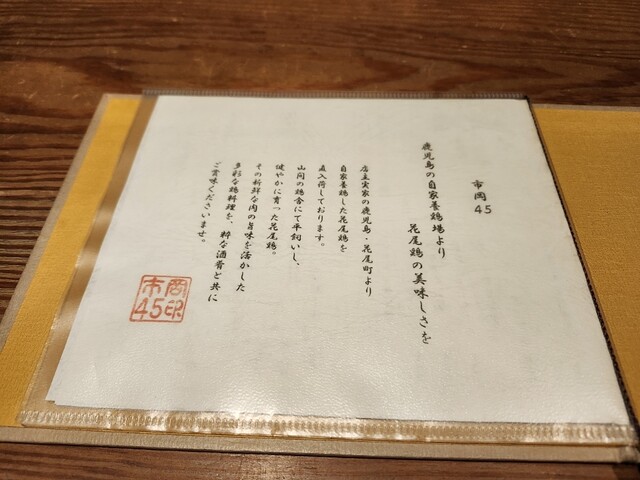 市岡45
鹿児島の自家養鶏場より
花尾鶏の美味しさを
店主実家の鹿児島・花尾町より
自家養鶏した花尾鶏を
直入荷しております。
山間の鶏舎にて平飼いし、
健やかに育った花尾鶏。
その新鮮な肉の旨味を活かした
多彩な鶏料理を、粋な酒肴と共に
ご賞味くださいませ。
市岡
45印